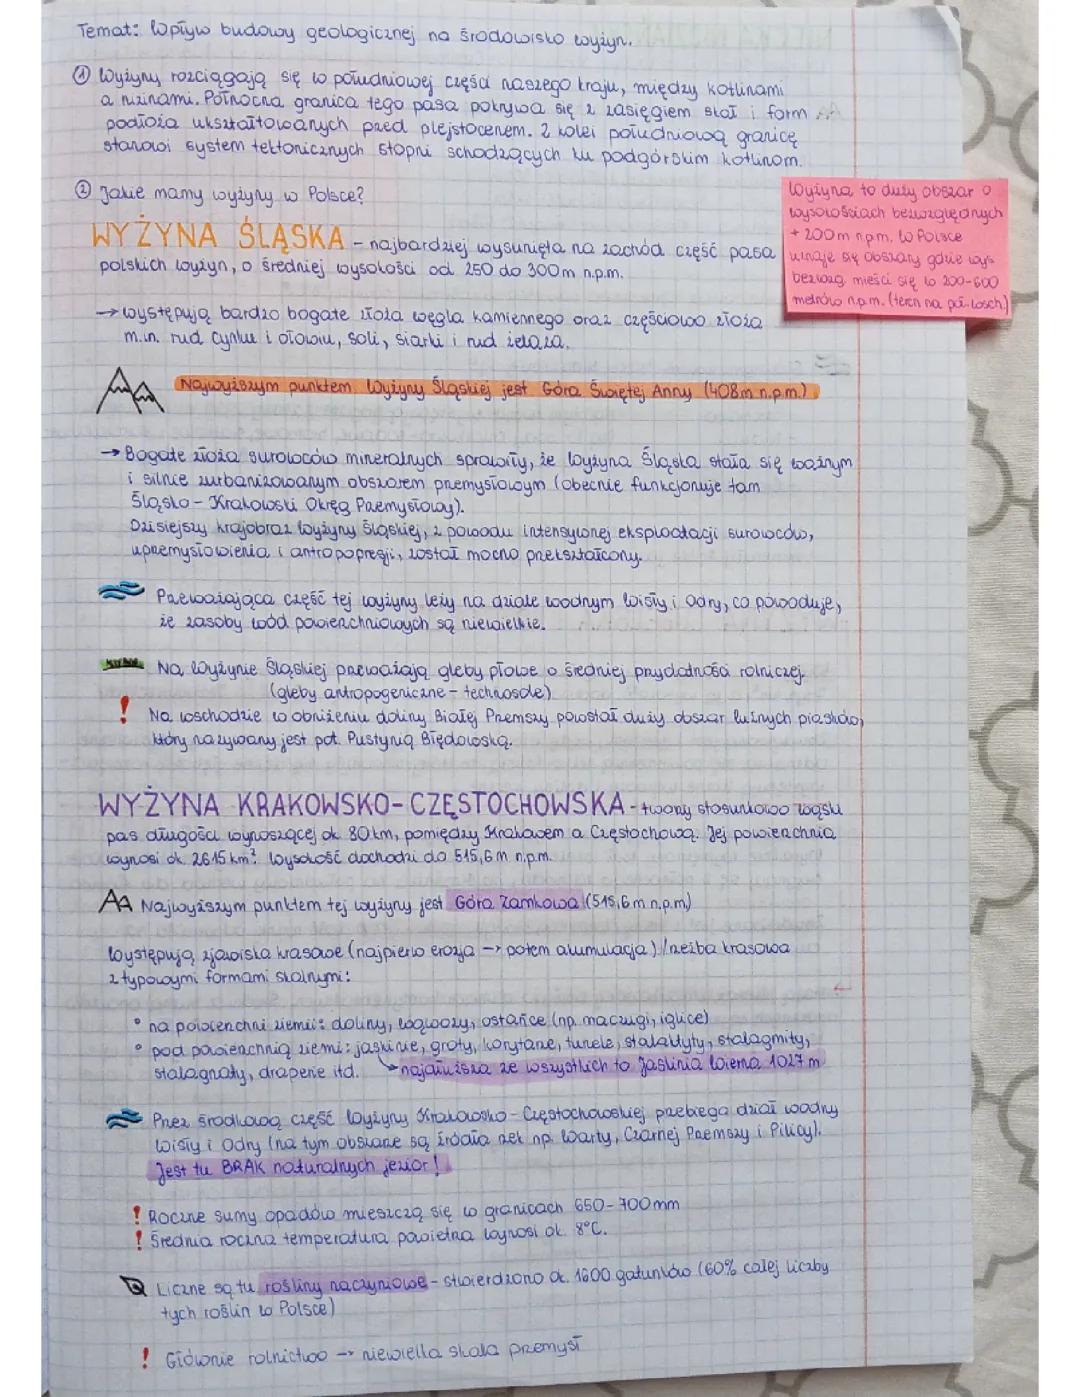 Temat: Wpływ budowy geologicznej na środowisko wyżyn.
① Wyżyny rozciągają się w południowej części naszego kraju, między kotlinami
a nizinami. Północna granica tego pasa pokrywa się z zasięgiem skał i form
podłoża ukształtowanych przed plejstocenem. Z kolei południową granicę
stanowi system tektonicznych stopni schodzących ku podgórskim kotlinom.
② Jakie mamy wyżyny w Polsce?
Wyżyna to duży obszar o
wysokościach bezwzględnych
+ 200m n.p.m. W Polsce
uznaje się obszary gdzie wys.
bezwzg. mieści się w 200-600
metrów n.p.m. (teren na poł.-wsch.)
WYŻYNA ŚLĄSKA - najbardziej wysunięta na zachód część pasa
polskich wyżyn, o średniej wysokości od 250 do 300m n.p.m.
→ występują bardzo bogate złoża węgla kamiennego oraz częściowo złoża
m.in. rud cynku i ołowiu, soli, siarki i rud żelaza.
Najwyższym punktem Wyżyny Śląskiej jest Góra Świętej Anny (408m n.p.m.)
→ Bogate złoża surowców mineralnych sprawiły, że Wyżyna Śląska stała się ważnym
i silnie zurbanizowanym obszarem przemysłowym (obecnie funkcjonuje tam
Śląsko - Krakowski Okręg Przemysłowy).
Dzisiejszy krajobraz Wyżyny Śląskiej, z powodu intensywnej eksploatacji surowców,
uprzemysłowienia i antropopresji, został mocno przekształcony.
Przeważająca część tej wyżyny leży na dziale wodnym Wisły i Odry, co powoduje,
że zasoby wód powierzchniowych są niewielkie.
Na Wyżynie Śląskiej przeważają gleby płowe o średniej przydatności rolniczej.
(gleby antropogeniczne - technosole)
! Na wschodzie w obniżeniu doliny Białej Przemszy powstał duży obszar luźnych piasków,
który nazywany jest pot. Pustynią Błędowską.
WYŻYNA KRAKOWSKO-CZĘSTOCHOWSKA - tworzy stosunkowo wąski
pas długości wynoszącej ok. 80 km, pomiędzy Krakowem a Częstochową. Jej powierzchnia
wynosi ok. 2615 km². Wysokość dochodzi do 515,6 m n.p.m.
Najwyższym punktem tej wyżyny jest Góra Zamkowa (515,6m n.p.m)
Występują zjawiska krasowe (najpierw erozja → potem akumulacja) / rzeźba krasowa
z typowymi formami skalnymi:
° na powierzchni ziemi: doliny, wąwozy, ostańce (np. maczugi, iglice)
° pod powierzchnią ziemi: jaskinie, groty, korytarze, tunele, stalaktyty, stalagmity,
stalagnaty, draperie itd. → najdłuższa ze wszystkich to Jaskinia Wierna 1027 m
Przez środkową część Wyżyny Krakowsko-Częstochowskiej przebiega dział wodny
Wisły i Odry (na tym obszarze są źródła rzek np. Warty, Czarnej Przemszy i Pilicy).
Jest tu BRAK naturalnych jezior!
! Roczne sumy opadów mieszczą się w granicach 650-700mm
! Średnia roczna temperatura powietrza wynosi ok. 8°C.
Liczne są tu rośliny naczyniowe - stwierdzono ok. 1600 gatunków (60% całej liczby
tych roślin w Polsce)
! Głównie rolnictwo → niewielka skala przemysł